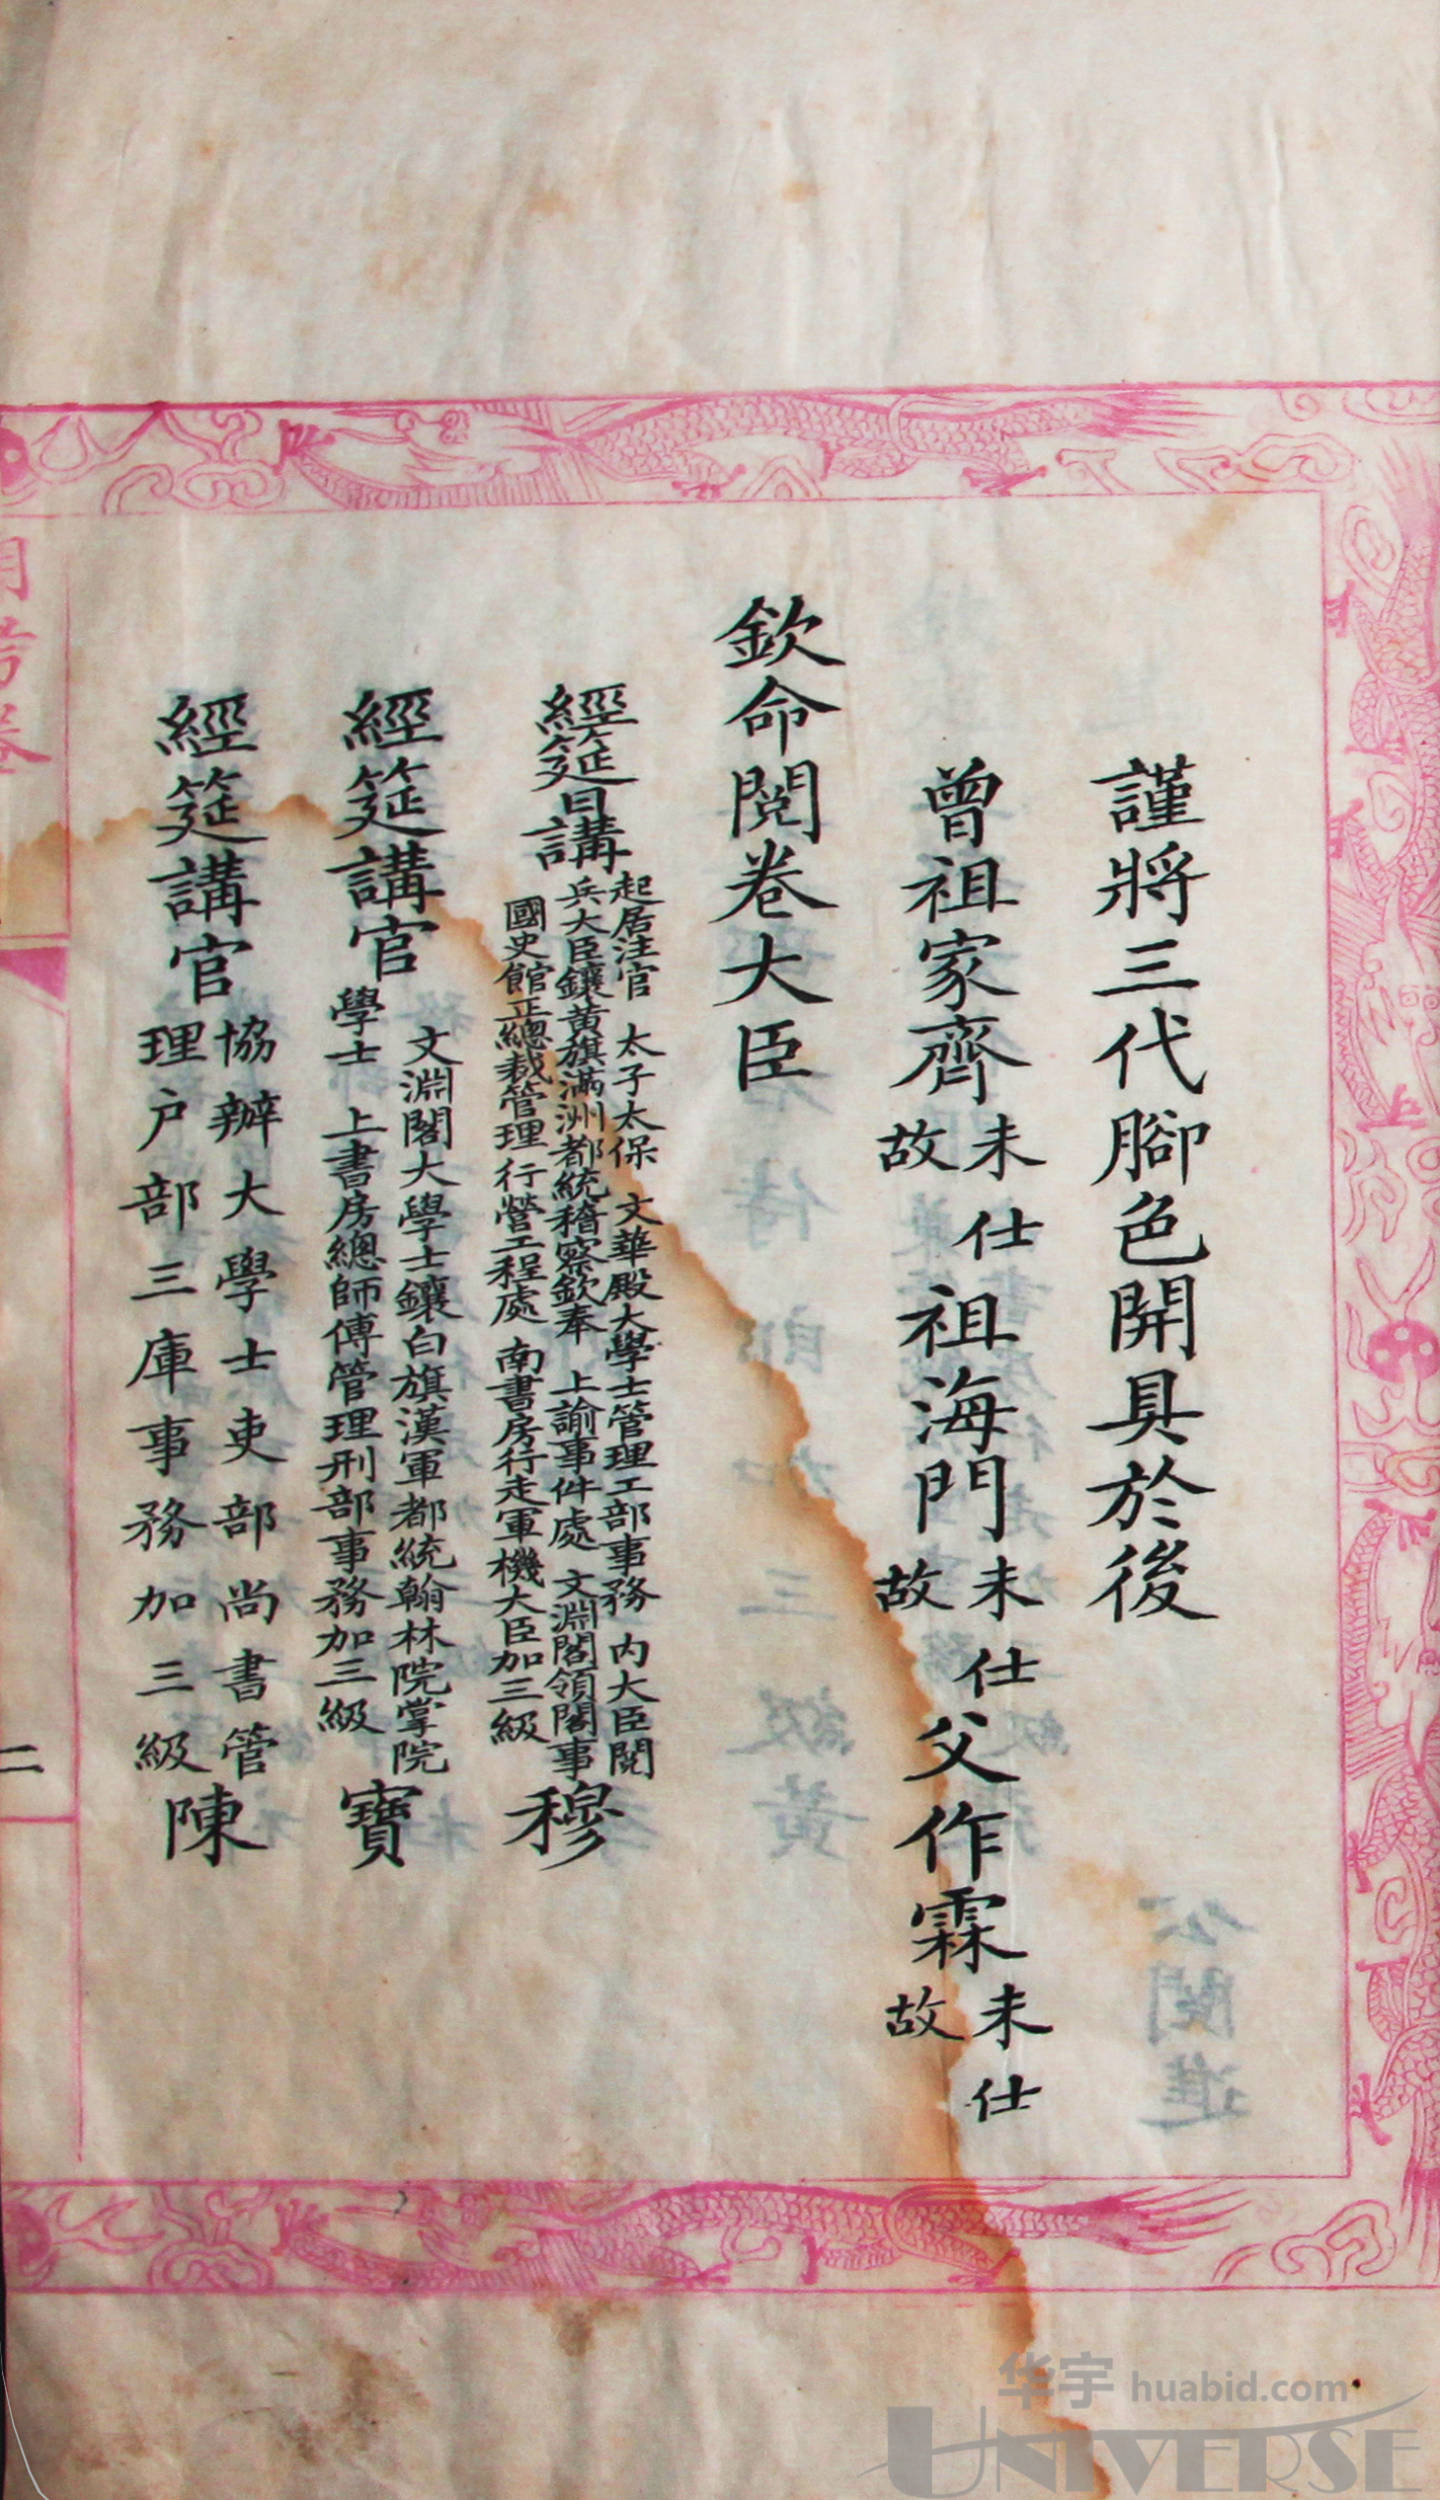 謹將三代腳色開具於後
曾祖家齊未仕故 祖海門未仕故 父作霖未仕故
欽命閱卷大臣
經筵日講起居注官 太子太保 文華殿大學士管理工部事務 內大臣閱
兵大臣鑲黃旗滿洲都統稽察欽奉 上諭事件處 文淵閣領閣事
國史館正總裁管理行營工程處 南書房行走軍機大臣加三級 穆
經筵講官 文淵閣大學士鑲白旗漢軍都統翰林院掌院
學士 上書房總師傅管理刑部事務加三級 寶
經筵講官協辦大學士吏部尚書管
理户部三庫事務加三級 陳
二
华宇 huabid.com
UNIVERSE